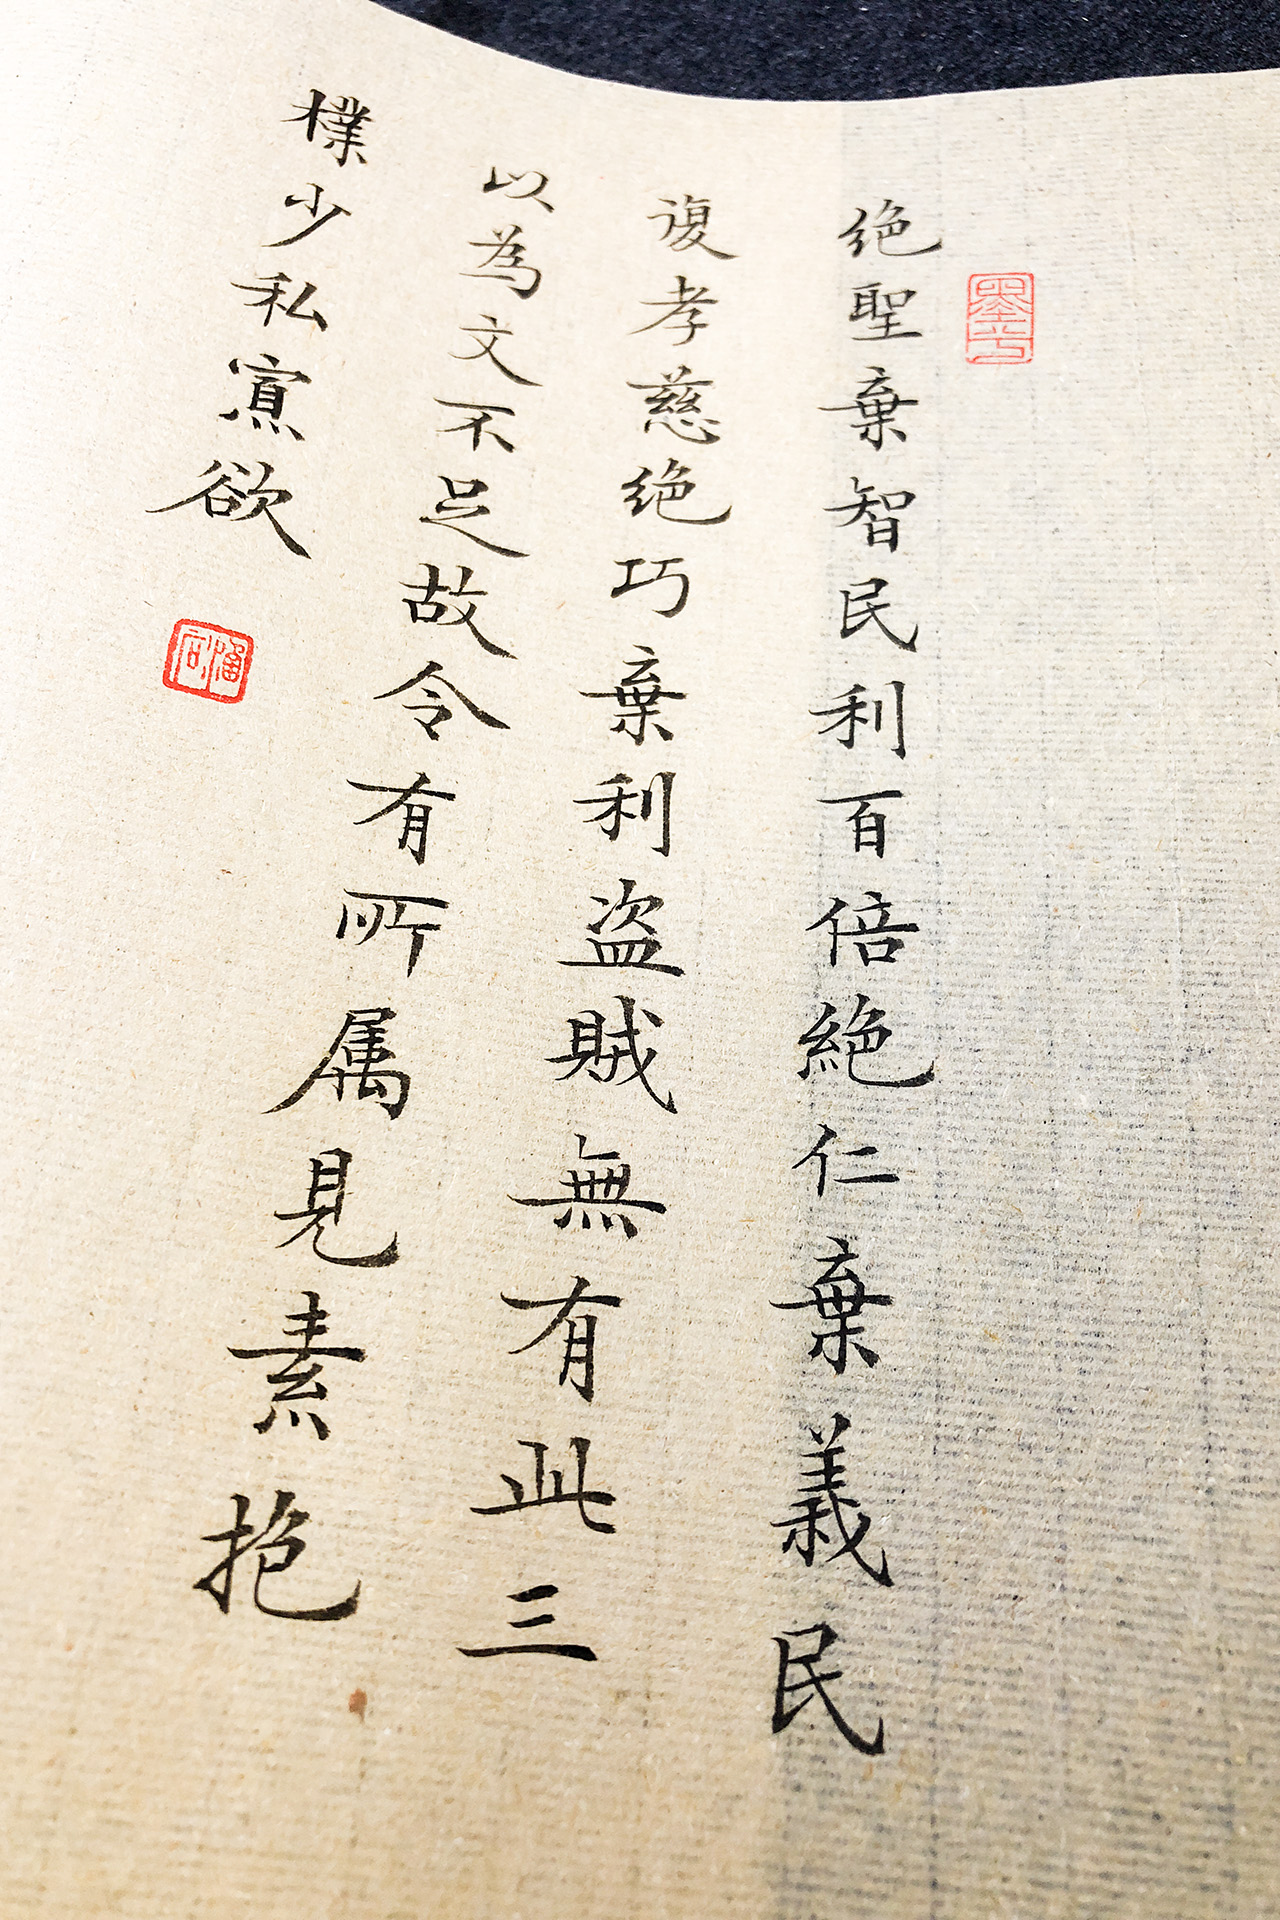 绝聖棄智民利百倍絶仁棄義民
復孝慈绝巧棄利盗賊無有此三
以為文不足故令有所属見素抱
樸少私寡欲